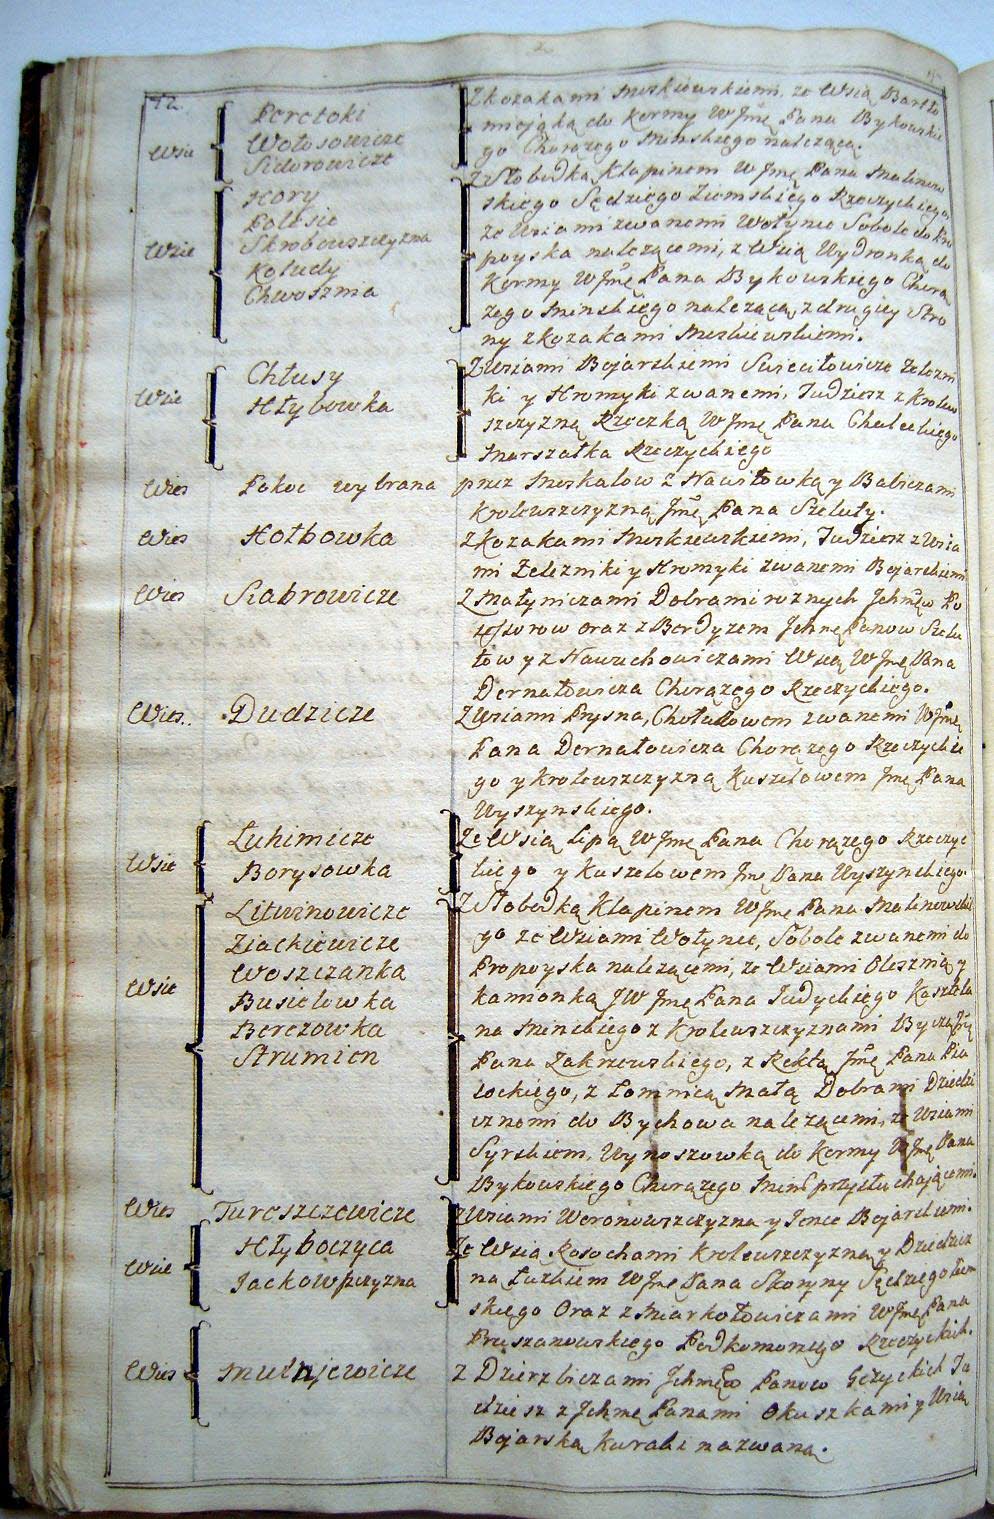 12.
Wsie Perotoki
Wołosowicze
Sidorowicze
z kozakami Merkiewskiemi, ze Wsią Barto
miejąką do Kormy W Jmę Pana Bykowskie
go Chorążego Mińskiego należącą.
Wsie Hory
Polesie
Skrobowszczyzna
Koludy
Chwoszma
z Słobodką Klapinem W Jmę Pana Malinow
skiego Sędziego Ziemskiego Rzeczyckiego,
ze Wsiami zwanemi Wołynec Sobole do Pro
poyska należącemi, z Wsią Wydronką do
Kormy W Jmę Pana Bykowskiego Chorą
żego Mińskiego należącą, z drugiey Stro
ny z kozakami Merkiewskiemi.
Wsie Chłusy
Hłybowka
Z Wsiami Bojarskiemi Swieciłowicze Zelezni
ki y Hromyki zwanemi, Tudziesz z Krolew
szczyzną Rzeczką W Jmę Pana Chaleckiego
Marszałka Rzeczyckiego
Wies Pokoc wybrana przez Moskalow z Nawiłowką y Babiczami
Krolewszczyzną Jmę Pana Szeluty.
Wies Hołbowka z kozakami Merkiewskiemi, Tudziesz z Wsia
mi Zelezniki y Hromyki zwanemi Bojarskiemi
Wies Siabrowicze Z Małyniczami Dobrami roznych Jchmęw Po
sessorow oraz z Berdyzem Jchmę Panow Szelu
tow y z Nawuchowiczami Wsią W Jmę Pana
Dernałowicza Chorążego Rzeczyckiego.
Wies.. Dudzicze Z Wsiami Prysna, Chotulowem zwanemi W Jmę
Pana Dernałowicza Chorążego Rzeczyckie
go y krolewszczyzną Kuszelowem Jmę Pana
Wyszynskiego.
Wsie Luhimicze
Borysowka
Ze Wsią Lipą W Jmę Pana Chorążego Rzeczyc
kiego y Kuszelowem Jmę Pana Wyszynskiego.
Wsie Litwinowicze
Ziackiewicze
Woszczanka
Busielowka
Berezowka
Strumien
Z Słobodką Klapinem W Jmę Pana Malinowskie
go ze Wsiami Wołynec, Sobole zwanemi do
Propoyska należącemi, ze Wsiami Olesznią y
Kamonką JW Jmę Pana Judyckiego Kasztela
na Mińskiego z Krolewszczyznami Byczą Jmę
Pana Zakrzewskiego, z Rektą Jmę Pana Pia
lockiego, z Łomnicą Małą Dobrami Dziedzi
cznemi do Bychowa należącemi, ze Wsiami
Syrskiem, Wynoszowką do Kormy W Jmę Pana
Bykowskiego Chorążego Minł przysłuchającemi.
Wies Tureszczewicze z Wsiami Woronowszczyzna y Jence Bojarskiemi.
Wsie Hłyboczyca
Jackowszczyzna
Ze Wsią Rosochami Krolewszczyzną y Dziedzicz
na Łuzkiem W Jmę Pana Skoryny Sędziego Ziem
skiego Oraz z Markołowiczami W Jmę Pana
Pruszanowskiego Podkomorzego Rzeczyckich.
Wies Mulnjewicze Z Dzierzbiczami Jchmęw Panow Gizyckich Tu
dziesz z Jchmę Panami Okuszkami y Wsią
Bojarską Kurabi nazwaną.